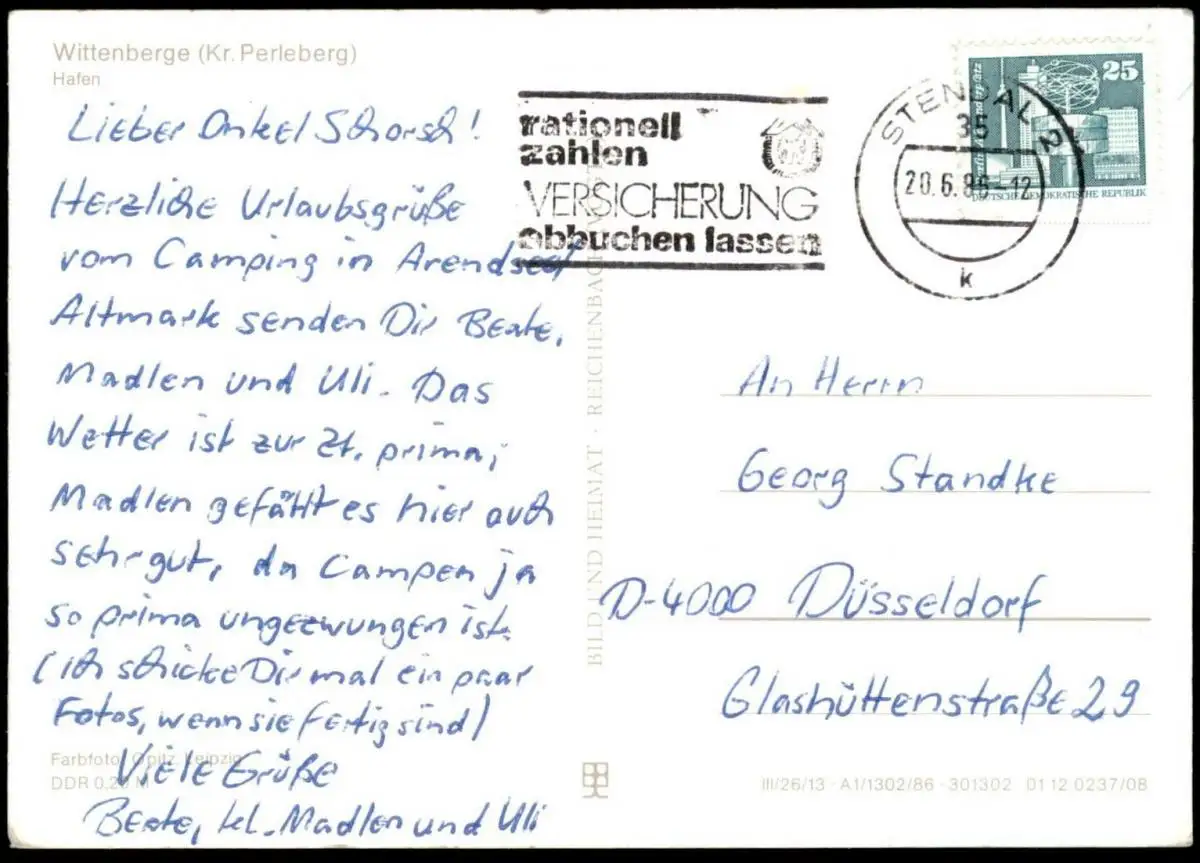 Wittenberge (Kr. Perleberg)
Hafen
Lieber Onkel Schorsch!
Herzliche Urlaubsgrüße
vom Camping in Arendsee/
Altmark senden Dir Beate,
Madlen und Uli. Das
Wetter ist zur Zt. prima;
Madlen gefällt es hier auch
sehr gut, da Campen ja
so prima ungezwungen ist.
(ich schicke Dir mal ein paar
Fotos, wenn sie fertig sind)
Viele Grüße
Beate, kl. Madlen und Uli
Farbfoto: Opitz, Leipzig
DDR 0,20 M
BILD UND HEIMAT · REICHENBACH
rationell
zahlen
VERSICHERUNG
abbuchen lassen
STENDAL 2
35
20.6.86-12
k
25
DEUTSCHE DEMOKRATISCHE REPUBLIK
An Herrn
Georg Standke
D-4000 Düsseldorf
Glashüttenstraße 29
III/26/13 · A1/1302/86 · 301302 01 12 0237/08